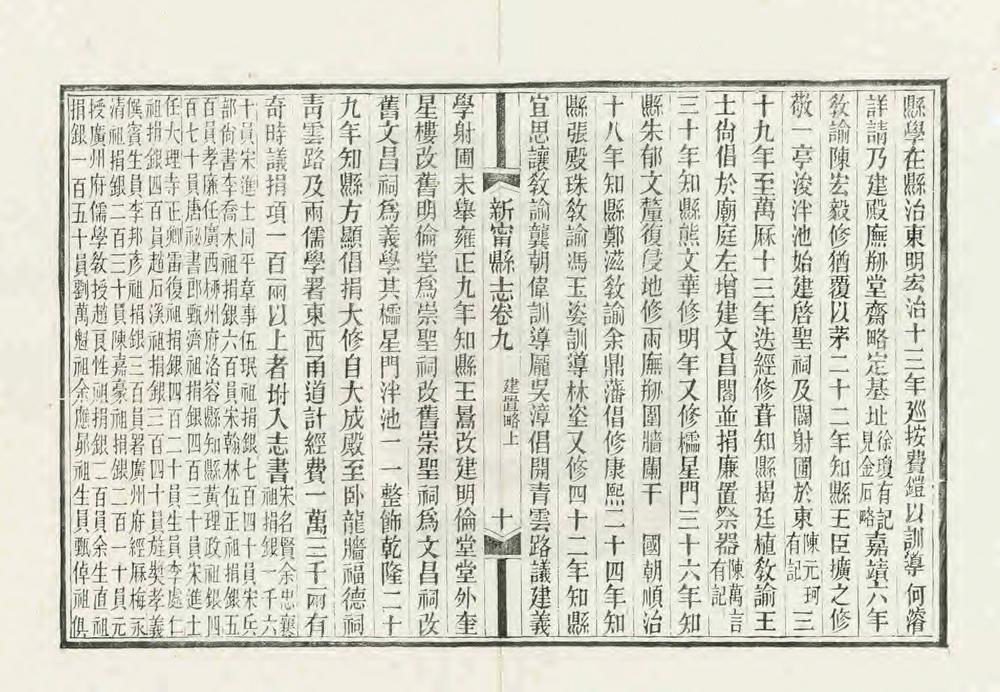 縣學在縣治東明宏治十三年廵按費鎧以訓導何濬
詳請乃建殿廡剙堂齋略定基址徐瓊有記見金石略嘉靖六年
敎諭陳宏毅修猶覆以茅二十二年知縣王臣壙之修
敬一亭浚泮池始建啓聖祠及闢射圃於東陳元珂有記三
十九年至萬厤十三年迭經修葺知縣揭廷植敎諭王
士尙倡於廟庭左增建文昌閣並捐廉置祭器陳萬言有記
三十年知縣熊文華修明年又修櫺星門三十六年知
縣朱郁文釐復侵地修兩廡剙圍牆闌干　國朝順治
十八年知縣鄭滋敎諭余鼎藩倡修康熙二十四年知
縣張殿珠敎諭馮玉姿訓導林垐又修四十二年知縣
宜思讓敎諭龔朝偉訓導龐吳漳倡開青雲路議建義
新甯縣志卷九　建置略上　十
學射圃未舉雍正九年知縣王暠改建明倫堂堂外奎
星樓改舊明倫堂爲崇聖祠改舊崇聖祠爲文昌祠改
舊文昌祠爲義學其櫺星門泮池一一整飾乾隆二十
九年知縣方顯倡捐大修自大成殿至卧龍牆福德祠
靑雲路及兩儒學署東西甬道計經費一萬三千兩有
奇時議捐項一百兩以上者坿入志書宋名賢余忠襄祖捐銀一千六
十員宋進士同平章事伍珉祖捐銀七百四十員宋兵
部尙書李喬木祖捐銀六百員宋翰林伍正祖捐銀五
百員孝廉任廣西桞州府洛容縣知縣黃理政祖捐銀四
百七十員唐祕書郎甄濟祖捐銀四百三十員宋進士
任大理寺正卿雷復祖捐銀四百二十員生員李處仁
祖捐銀四百員趙石溪祖捐銀三百四十員旌奬孝義
僎賓生員李邦彥祖捐銀三百員署廣州府經厤梅永
清祖捐銀二百三十員陳嘉豪祖捐銀二百一十員元
授廣州府儒學敎授趙良性祖捐銀二百員余生直祖
捐銀一百五十員劉萬魁祖余應昴祖生員甄倬祖俱